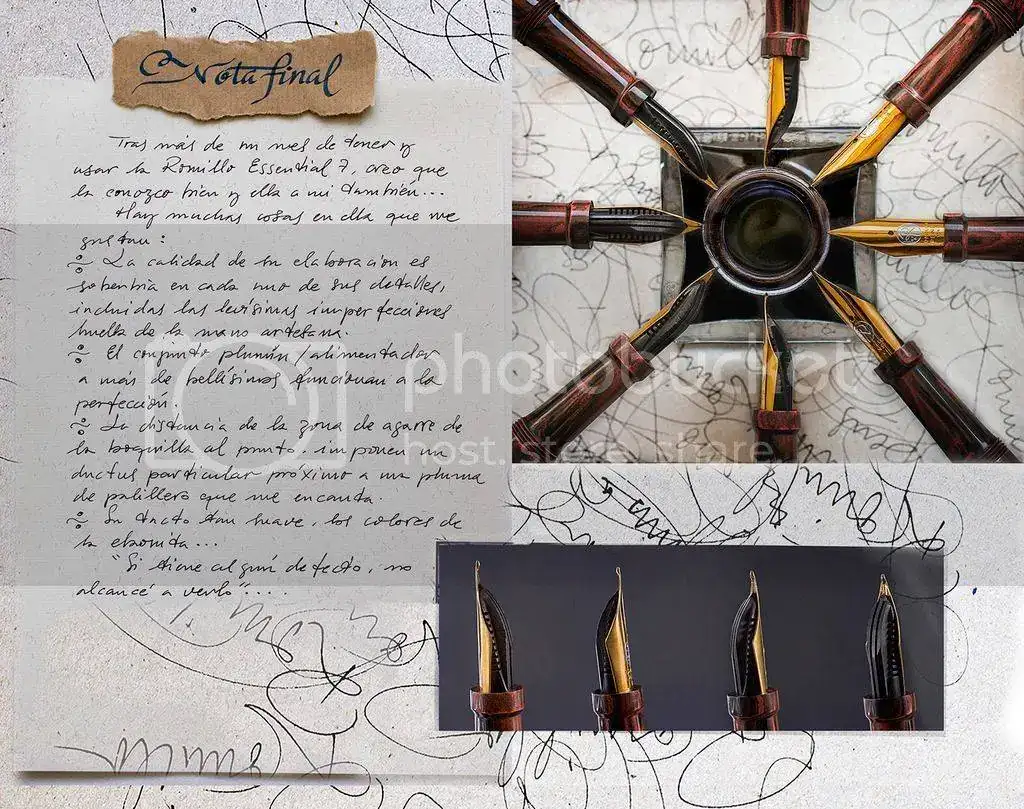 Nota final
Tras más de un mes de tener y
usar la Romillo Essential 7, creo que
la conozco bien y ella a mi también...
Hay muchas cosas en ella que me
gustan :
La calidad de su elaboración es
soberbia en cada uno de sus detalles,
incluidas las levísimas imperfecciones
huella de la mano artesana.
El conjunto plumín/alimentador
a más de bellísimos funcionan a la
perfección.
La distancia de la zona de agarre de
la boquilla al punto imponen un
ductus particular próximo a una pluma
de palillero que me encanta.
Su tacto tan suave, los colores de
la ebonita...
"Si tiene algún defecto, no
alcancé a verlo"....
photobucket
host. store. share.